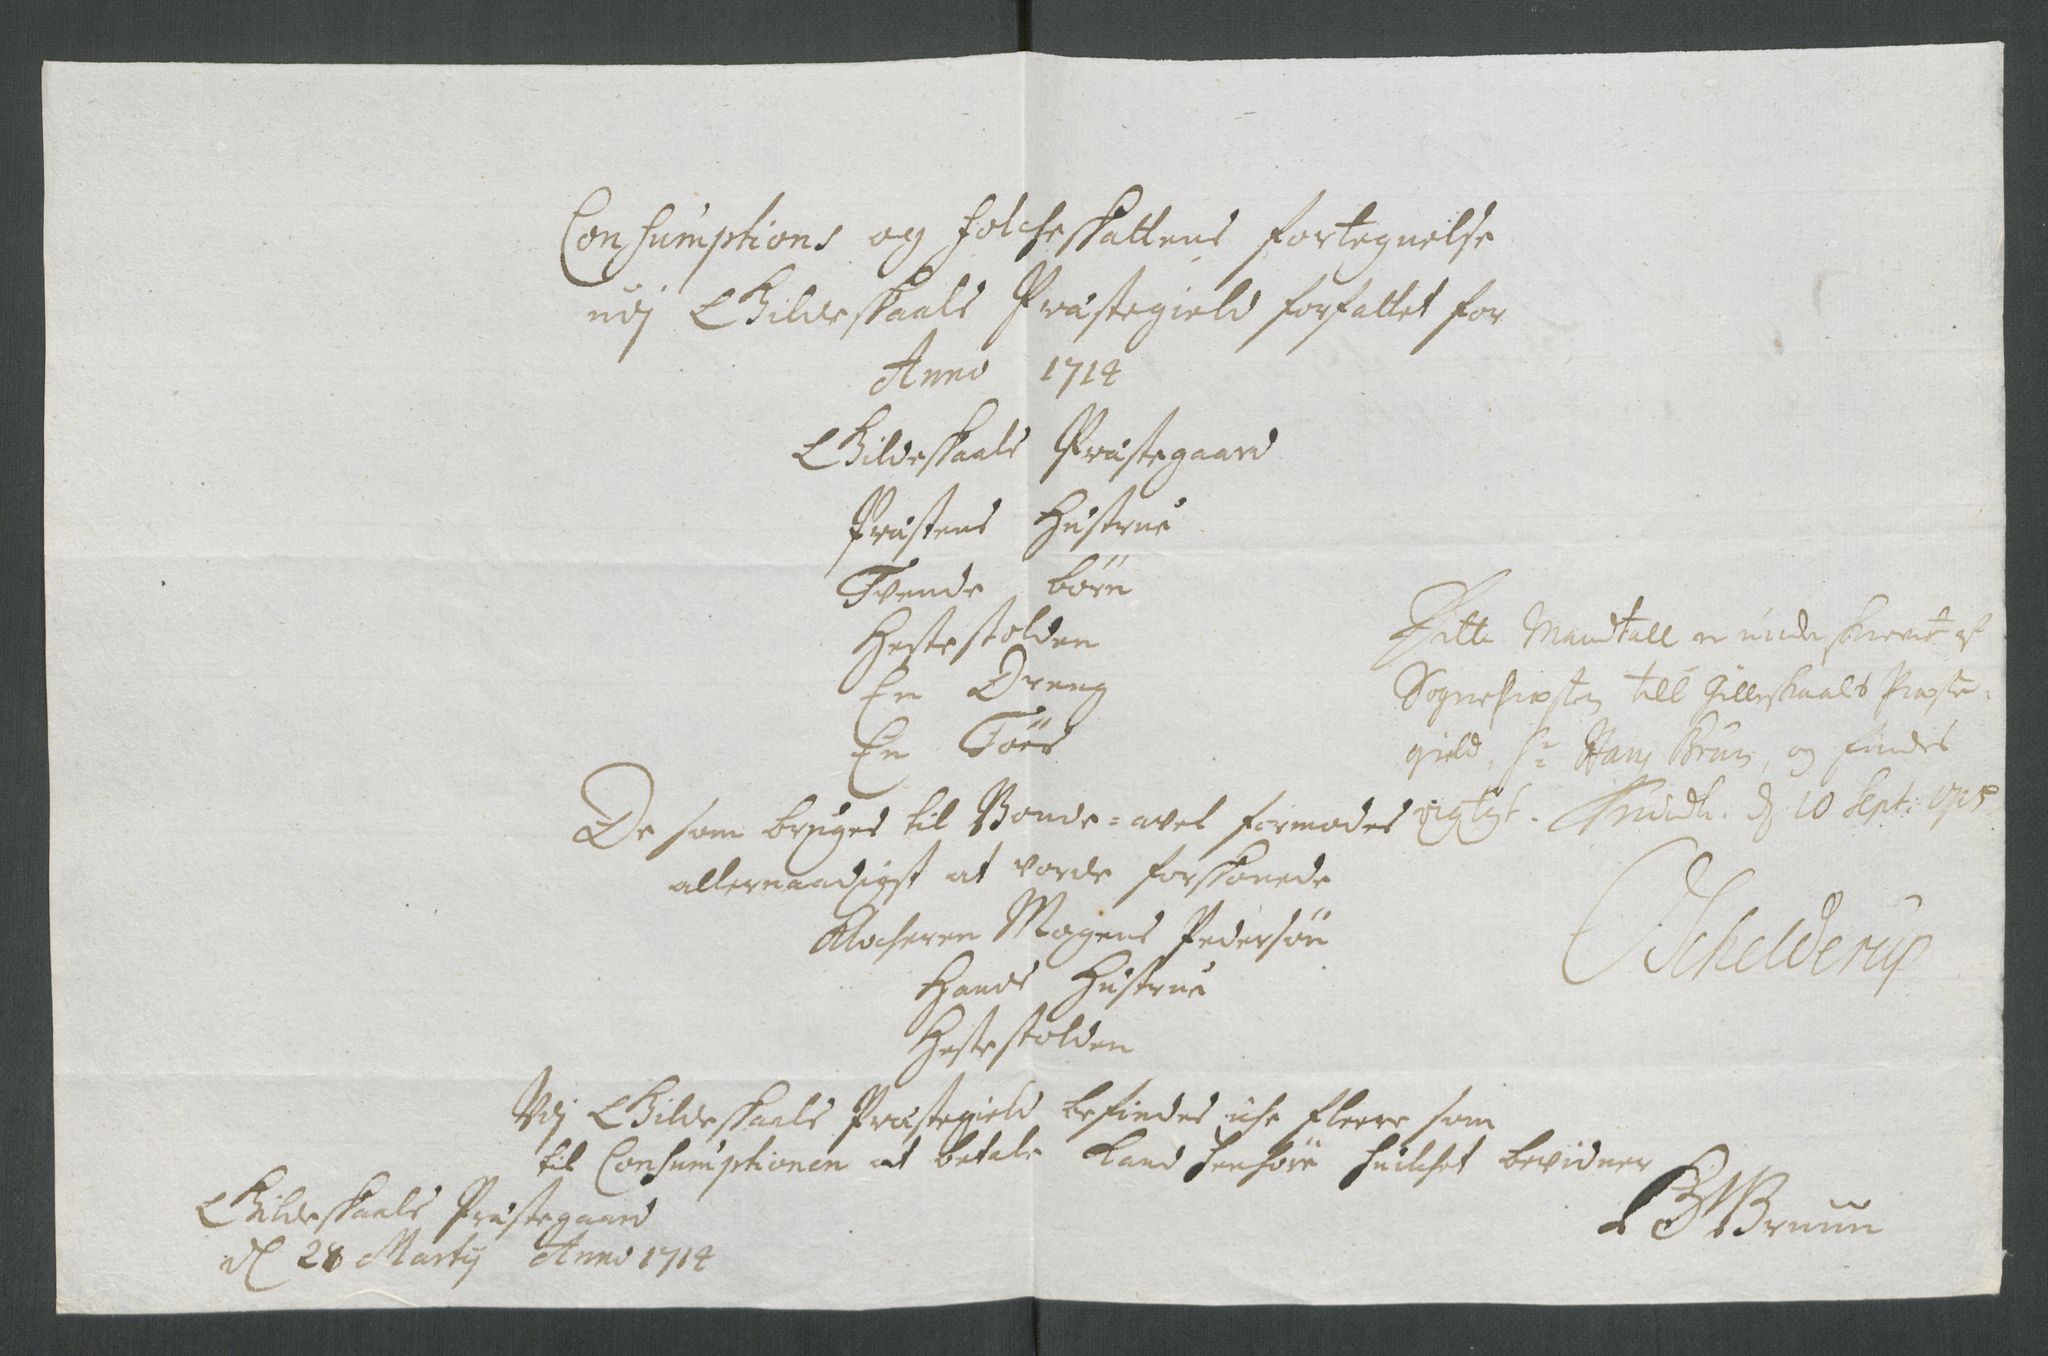 Consumptions og Folcheskattens fortegnelse
udj Gildeskaals Præstegield forfattet for
Anno 1714
Gildeskaals Præstegaard
Præstens Hustrue
Tvende börn
Hestestolden
En Dreng
En Töes
De som bruges til Bonde-avel formodes
allernaadigst at vorde forskonede
Klocheren Mogens Pedersön
Hands Hustrue
Hestestolden
Udj Gildeskaals Præstegield befindes iche fleere som
til Consumptionen at betale kand henhöre huilchet bevidner
Gildeskaals Præstegaard
d 28 Martij Anno 1714
Bruun
Dette Mandtall er underskrevet af
Sognepresten till Gilleskaals Præste-
gield, Hr Hans Brun, og findes
rigtigt. d 10 Sept: 1715
Schelderup